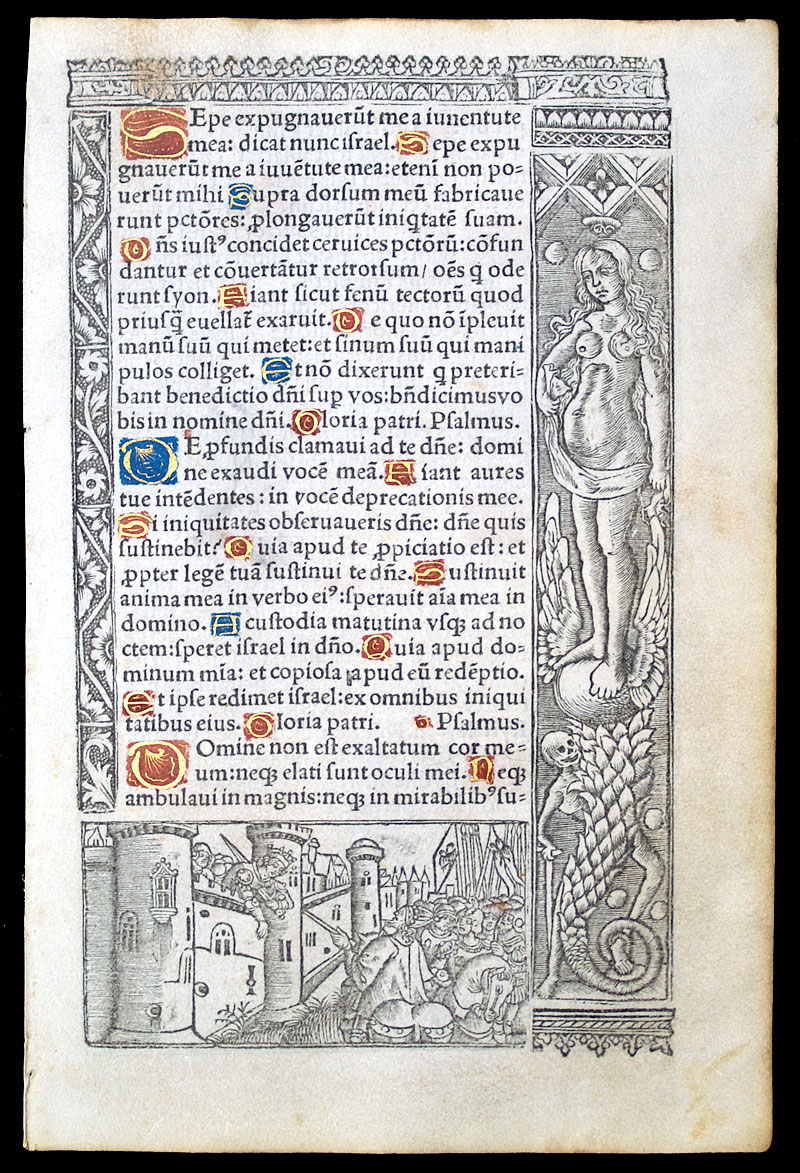 SEpe expugnauerūt me a iuuentute
mea: dicat nunc israel. Sepe expu
gnauerūt me a iuuētute mea: eteni non po=
uerūt mihi Supra dorsum meū fabricaue
runt pctōres: ꝓlongauerūt iniqtatē suam.
Dñs iustꝰ concidet ceruices pctōrū: cōfun
dantur et cōuertātur retrorsum / oēs q̄ ode
runt syon. Fiant sicut fenū tectorū quod
priusq̄ euellat̄ exaruit. De quo nō īpleuit
manū suū qui metet: et sinum suū qui mani
pulos colliget. Et nō dixerunt q̄ preteri=
bant benedictio dn̄i suꝑ vos: bn̄dicimus vo
bis in nomine dn̄i. Gloria patri. Psalmus.
DE ꝓfundis clamaui ad te dn̄e: domi
ne exaudi vocē meā. Fiant aures
tue intēdentes: in vocē deprecationis mee.
Si iniquitates obseruaueris dn̄e: dn̄e quis
sustinebit? Quia apud te ꝓpiciatio est: et
ꝓpter legē tuā sustinui te dn̄e. Sustinuit
anima mea in verbo eiꝰ: sperauit aīa mea in
domino. A custodia matutina vsqꝫ ad no
ctem: speret israel in dn̄o. Quia apud do=
minum mīa: et copiosa apud eū redēptio.
Et ipse redimet israel: ex omnibus iniqui
tatibus eius. Gloria patri. Psalmus.
DOmine non est exaltatum cor me=
um: neqꝫ elati sunt oculi mei. Neqꝫ
ambulaui in magnis: neqꝫ in mirabilibꝰ su=